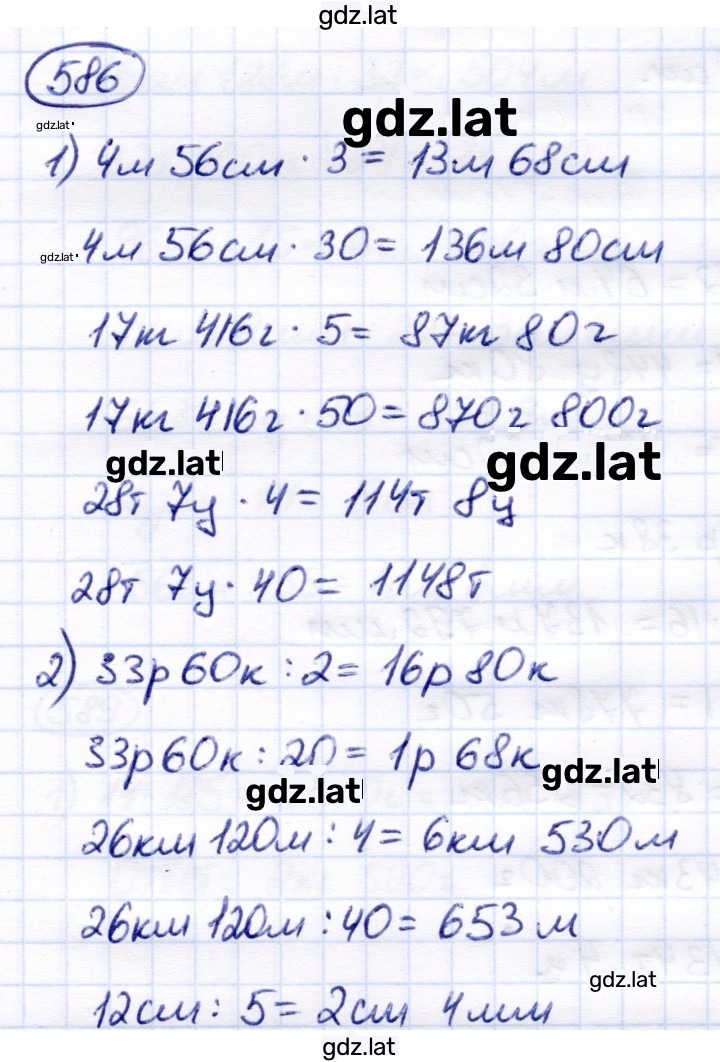 gdz.lat
586
gdz.lat
gdz.lat
1) 4м 56см · 3 = 13м 68см
gdz.lat
4м 56см · 30 = 136м 80см
17кг 416г · 5 = 87кг 80г
17кг 416г · 50 = 870г 800г
gdz.lat
gdz.lat
28т 7ц · 4 = 114т 8ц
28т 7ц · 40 = 1148т
2) 33р 60к : 2 = 16р 80к
33р 60к : 20 = 1р 68к
gdz.lat
gdz.lat
26км 120м : 4 = 6км 530м
26км 120м : 40 = 653м
gdz.lat
12см : 5 = 2см 4мм
gdz.lat